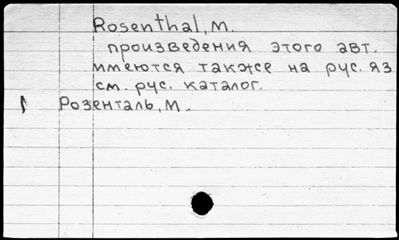 Rosenthal, M.
произведения этого авт.
имеются также на рус. яз
см. рус. каталог.
Розенталь, М.